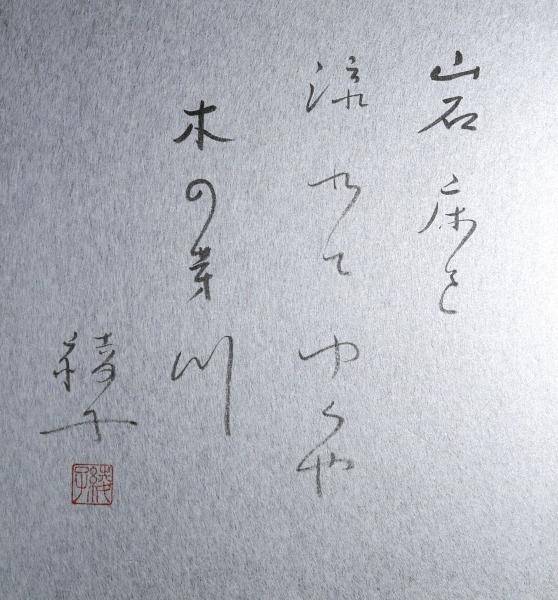 岩床を
流れてゆくや
木の芽川
綾子
綾子